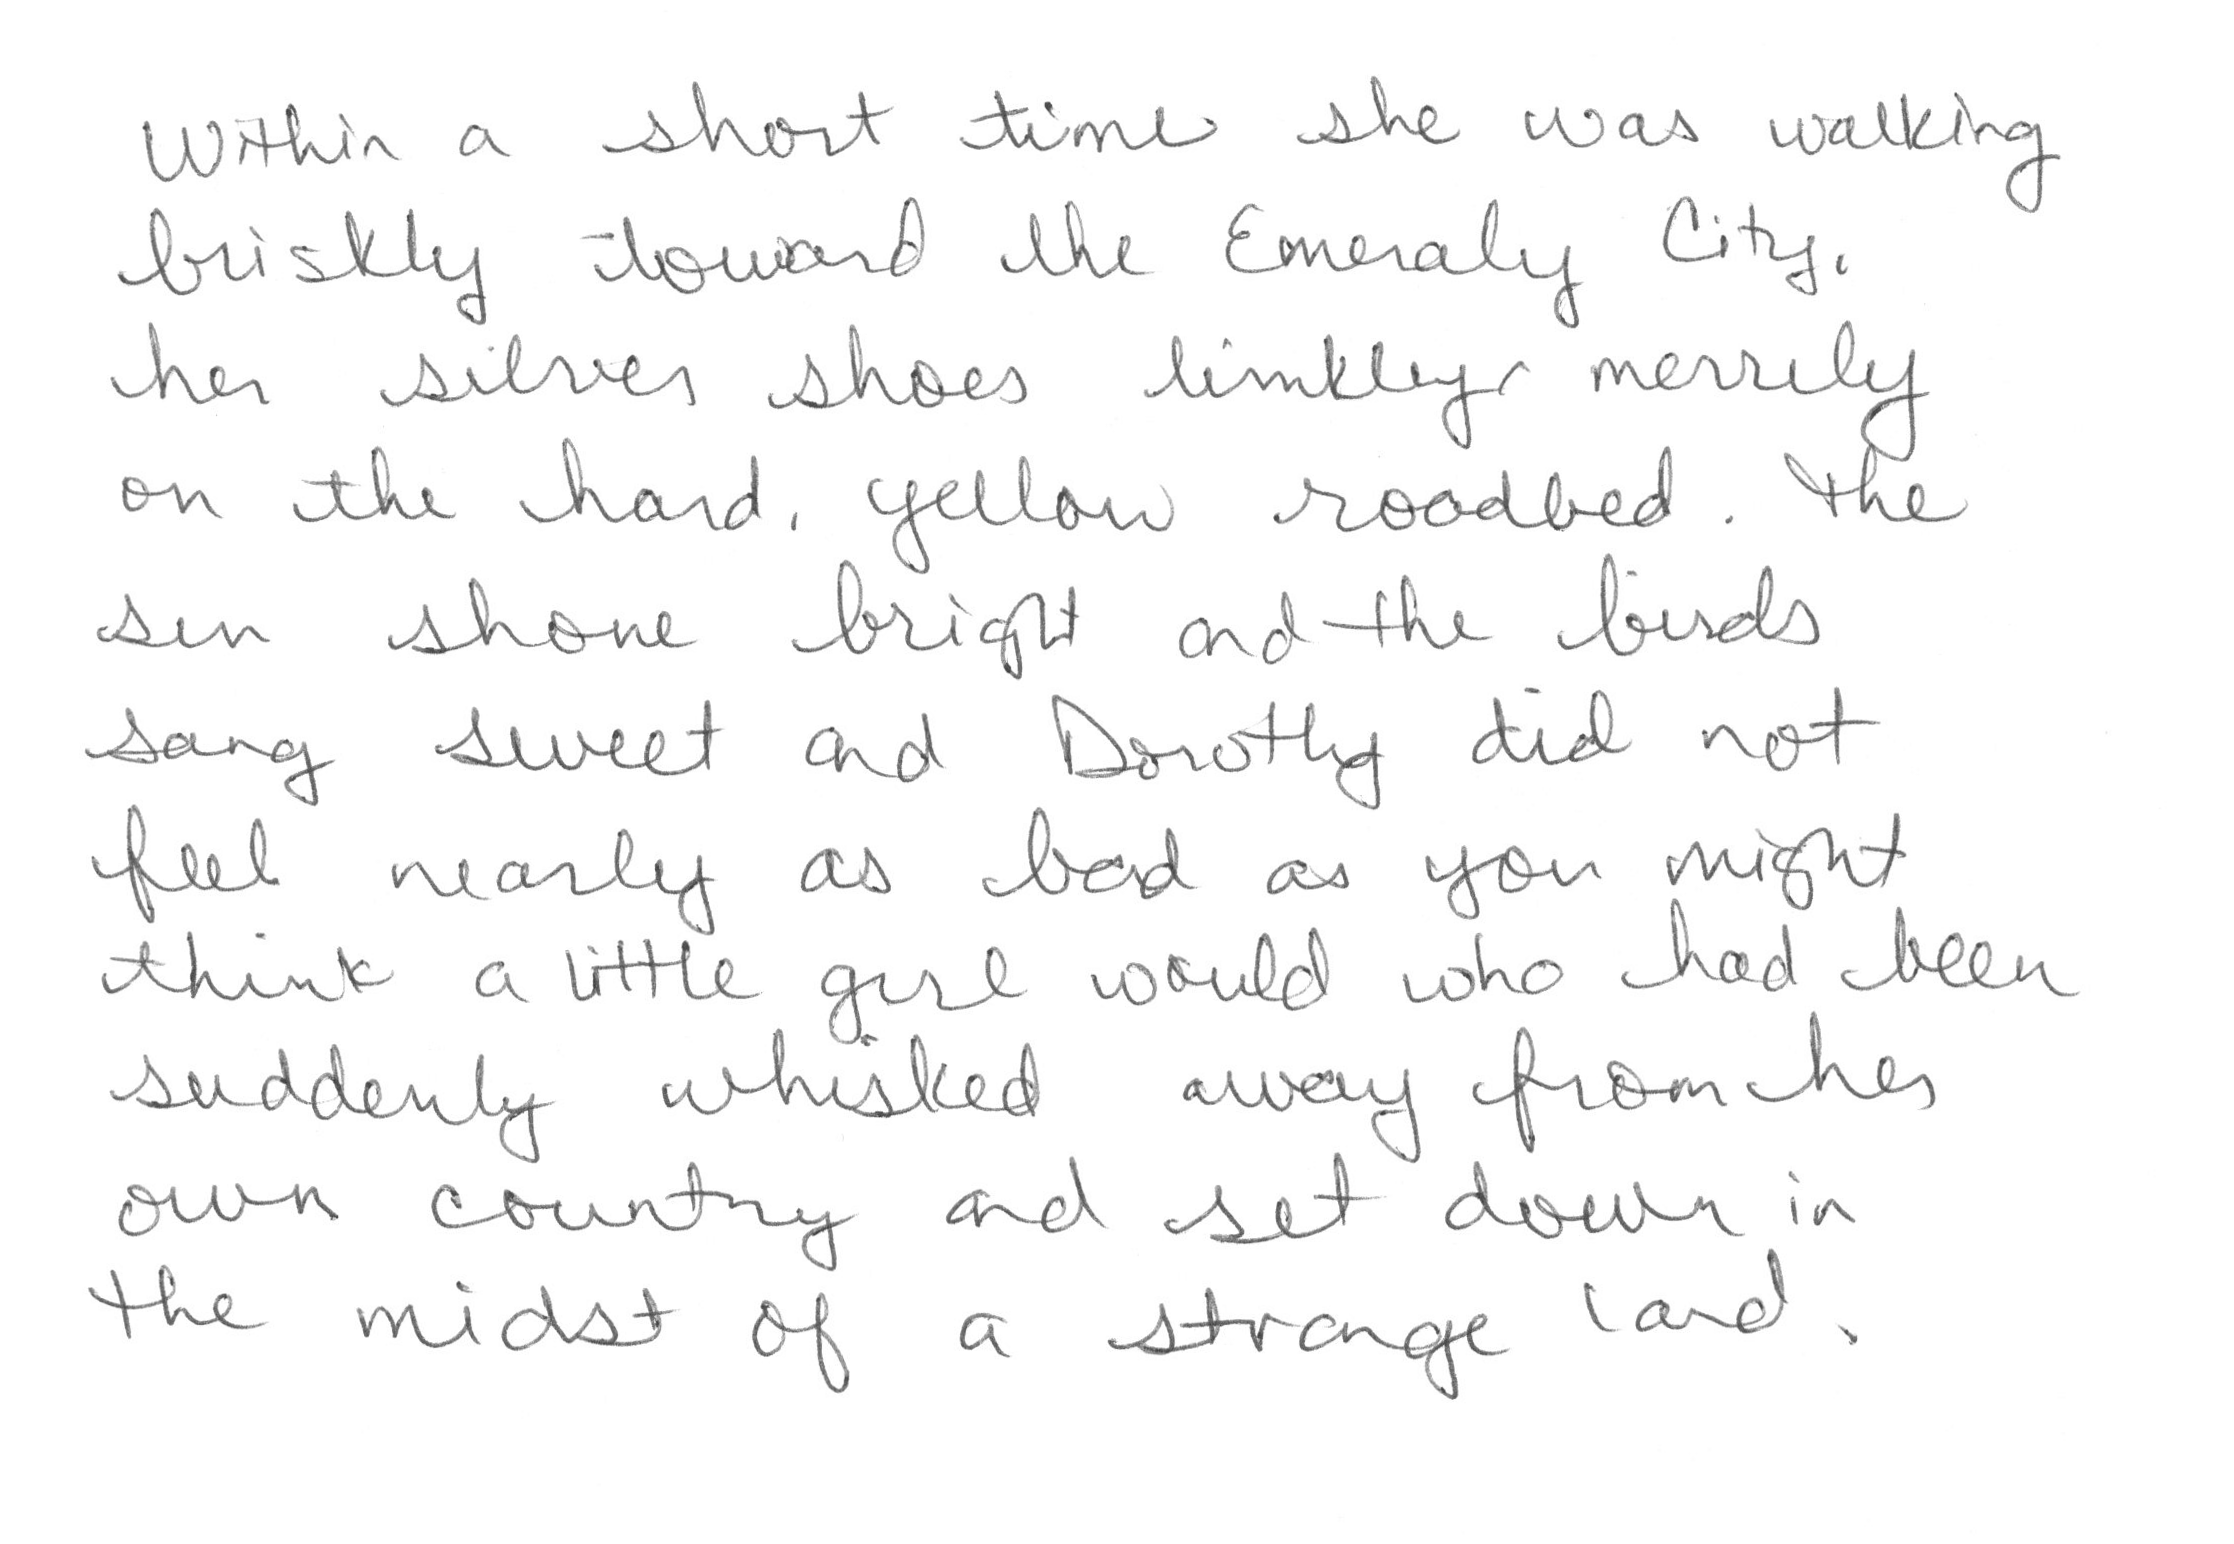 Within a short time she was walking
briskly toward the Emeraly City,
her silver shoes limkley merrily
on the hard, yellow roadbed. the
sun shone bright and the birds
sang sweet and Dorothy did not
feel nearly as bad as you might
think a little girl would who had been
suddenly whisked away from her
own country and set down in
the midst of a strange land.